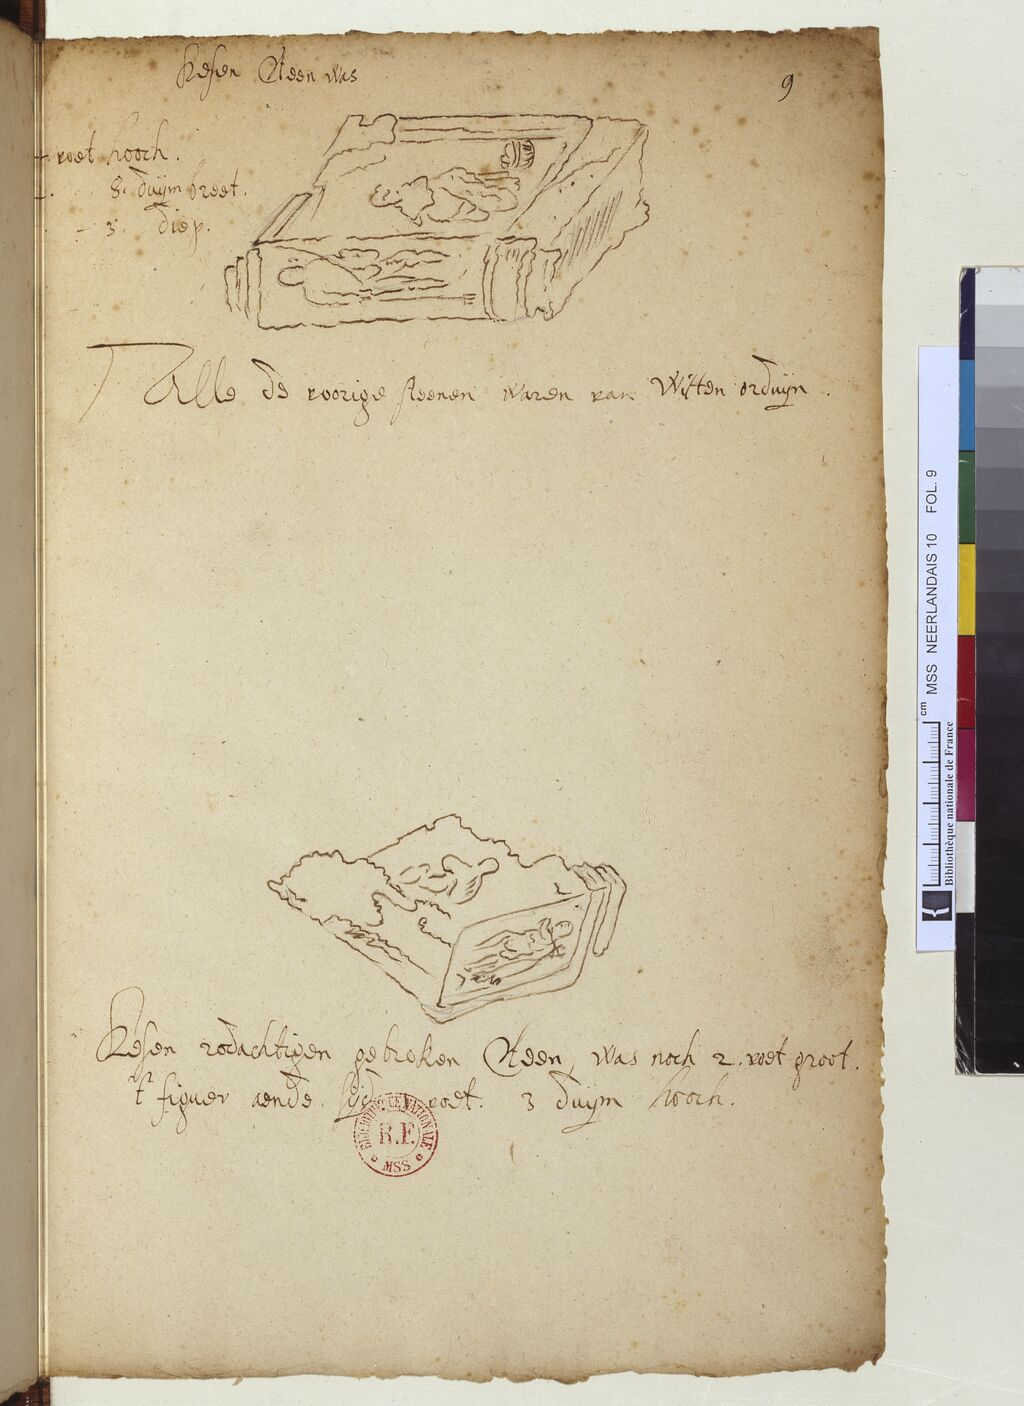 Desen Steen was
9
voet hooch.
8. duijm breet.
- 3. diep.
Alle de voorige steenen waren van Witten orduijn.
Desen rodachtigen gebroken Steen, was noch 2. voet groot.
t' figuer aende sijde voet. 3 duijm hooch.
BIBLIOTHÈQUE NATIONALE
R.F.
MSS
MSS NEERLANDAIS 10 FOL. 9
cm
Bibliothèque nationale de France